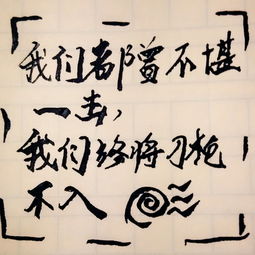 我们都曾不堪
一击，
我们终将刀枪
不入